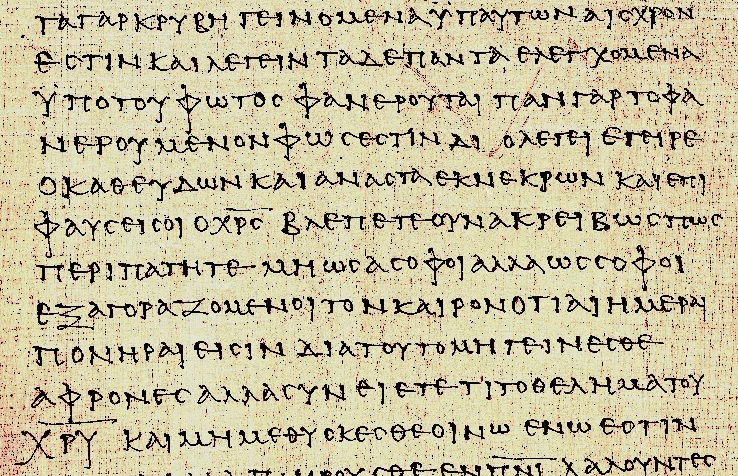 ΤΑ ΓΑΡ ΚΡΥΒΗ ΓΕΙΝΟΜΕΝΑ ΥΠ ΑΥΤΩΝ ΑΙϹΧΡΟΝ
ΕϹΤΙΝ ΚΑΙ ΛΕΓΕΙΝ ΤΑ ΔΕ ΠΑΝΤΑ ΕΛΕΓΧΟΜΕΝΑ
ΥΠΟ ΤΟΥ ΦΩΤΟϹ ΦΑΝΕΡΟΥΤΑΙ ΠΑΝ ΓΑΡ ΤΟ ΦΑ
ΝΕΡΟΥΜΕΝΟΝ ΦΩϹ ΕϹΤΙΝ ΔΙΟ ΛΕΓΕΙ ΕΓΕΙΡΕ
Ο ΚΑΘΕΥΔΩΝ ΚΑΙ ΑΝΑϹΤΑ ΕΚ ΝΕΚΡΩΝ ΚΑΙ ΕΠΙ
ΦΑΥϹΕΙ ϹΟΙ Ο Χ̅Ρ̅Ϲ̅ ΒΛΕΠΕΤΕ ΟΥΝ ΑΚΡΕΙΒΩϹ ΠΩϹ
ΠΕΡΙΠΑΤΗΤΕ ΜΗ ΩϹ ΑϹΟΦΟΙ ΑΛΛΑ ΩϹ ϹΟΦΟΙ
ΕΞΑΓΟΡΑΖΟΜΕΝΟΙ ΤΟΝ ΚΑΙΡΟΝ ΟΤΙ ΑΙ ΗΜΕΡΑΙ
ΠΟΝΗΡΑΙ ΕΙϹΙΝ ΔΙΑ ΤΟΥΤΟ ΜΗ ΓΕΙΝΕϹΘΕ
ΑΦΡΟΝΕϹ ΑΛΛΑ ϹΥΝΕΙΕΤΕ ΤΙ ΤΟ ΘΕΛΗΜΑ ΤΟΥ
Χ̅Ρ̅Υ̅ ΚΑΙ ΜΗ ΜΕΘΥϹΚΕϹΘΕ ΟΙΝΩ ΕΝ Ω ΕϹΤΙΝ
ΕΝ Π̅Ν̅Ι̅ ΛΑΛΟΥΝΤΕϹ